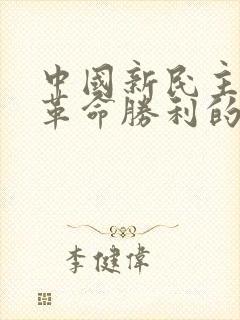 中國新民主
革命勝利的
李健偉